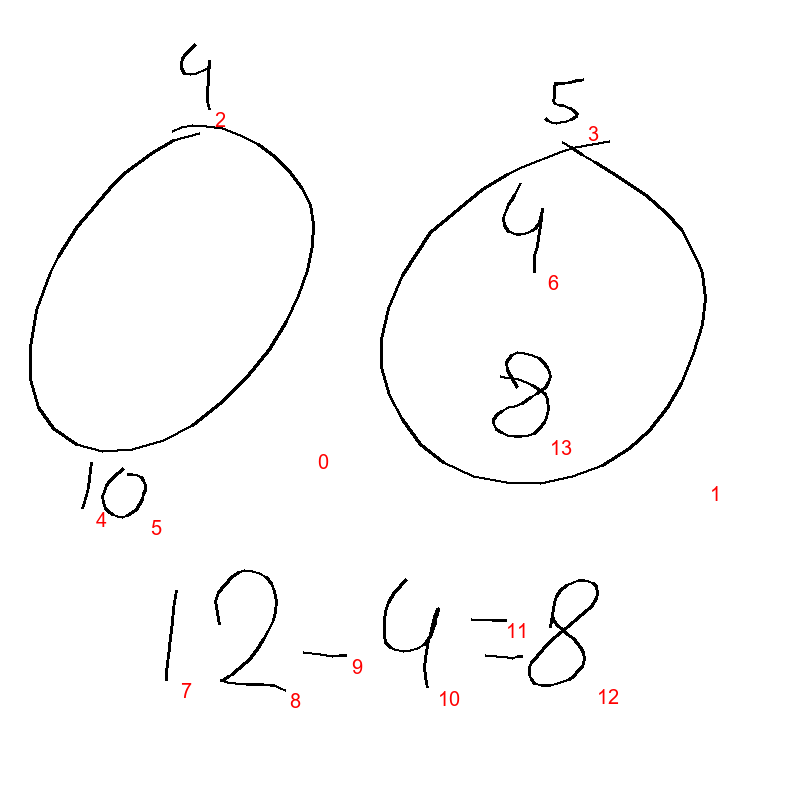 4
2
5
3
4
6
8
13
0
1
10
4 5
12 - 4 = 8
7 8 9 10 11 12